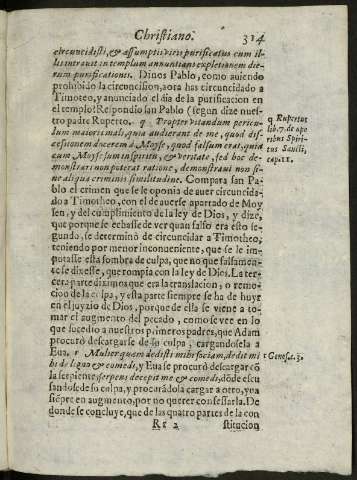 Christiano. 314
circuncidisti, & assumptis viris purificatus cum il-
lis intrauit in templum annuntians expletionem die-
rum purificationis. Dinos Pablo, como auiendo
prohibido la circuncision, aora has circuncidado a
Timoteo, y anunciado el dia de la purificacion en
el templo? Respondio san Pablo (segun dize nues-
tro padre Ruperto. q Propter vitandum pericu-
lum maioris mali, quia audierant de me, quod dis-
cessionem docerem à Moyse, quod falsum erat, quia
cum Moyse sum in spiritu, & veritate, sed hoc de-
monstrari non poterat ratione, demonstraui non si-
ne aliqua criminis similitudine. Compara san Pa-
blo el crimen que se le oponia de auer circuncida-
do a Timotheo, con el de auerse apartado de Moy-
sen, y del cumplimiento de la ley de Dios, y dize,
que porque se echasse de ver quan falso era esto se-
gundo, se determinò de circuncidar a Timotheo,
teniendo por menor inconueniente, que se le im-
putasse esta sombra de culpa, que no que falsamen-
te se dixesse, que rompia con la ley de Dios. La ter-
cera parte diximos que era la translacion, o remo-
cion de la culpa, y esta parte siempre se ha de huyr
en el juyzio de Dios, porque de ella se viene a to-
mar el augmento del pecado, como se vee en lo
que sucedio a nuestros primeros padres, que Adam
procurò descargarse de su culpa, cargandosela a
Eua. r Mulier quem dedisti mihi sociam, dedit mi
hi de ligno & comedi, y Eua se procurò descargar cõ
la serpiente serpens decepit me & comedi, dõde escu
sandose de su culpa, y procurãdola cargar a otro, yua
siẽpre en augmento, por no querer confessarla. De
donde se concluye, que de las quatro partes de la con
Rr 2 stitucion
q Rupertus
lib. 7. de ope
ribus Spiri-
tus Sancti,
cap. 11.
r Genes. c. 3.